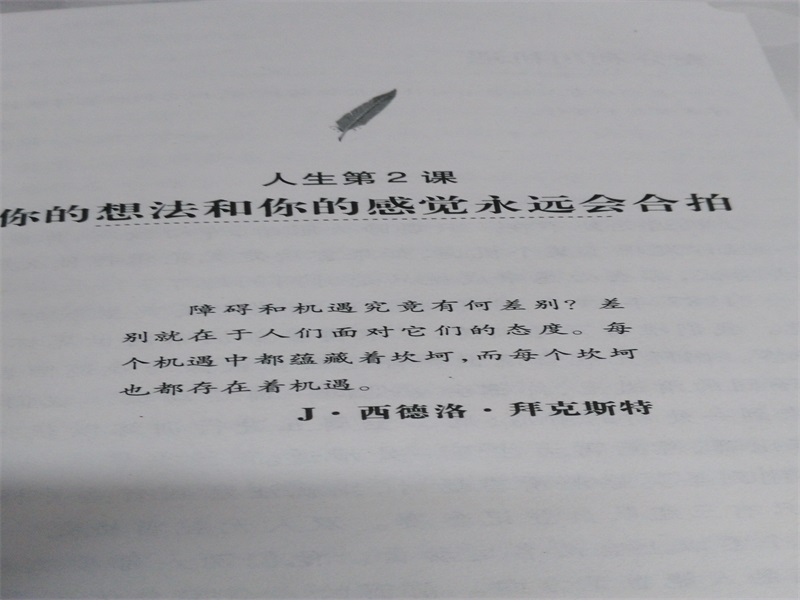 人生第2课
你的想法和你的感觉永远会合拍
障碍和机遇究竟有何差别？差
别就在于人们面对它们的态度。每
个机遇中都蕴藏着坎坷，而每个坎坷
也都存在着机遇。
J·西德洛·拜克斯特